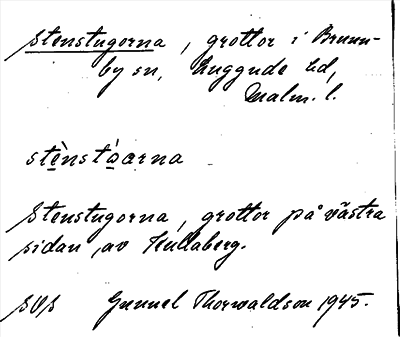 Stenstugorna, grottor i Brunn-
by sn, Luggude hd,
Malm. l.
stènstóærna
Stenstugorna, grottor på västra
sidan av Kullaberg.
SOS Gunnel Thorwaldson 1945.